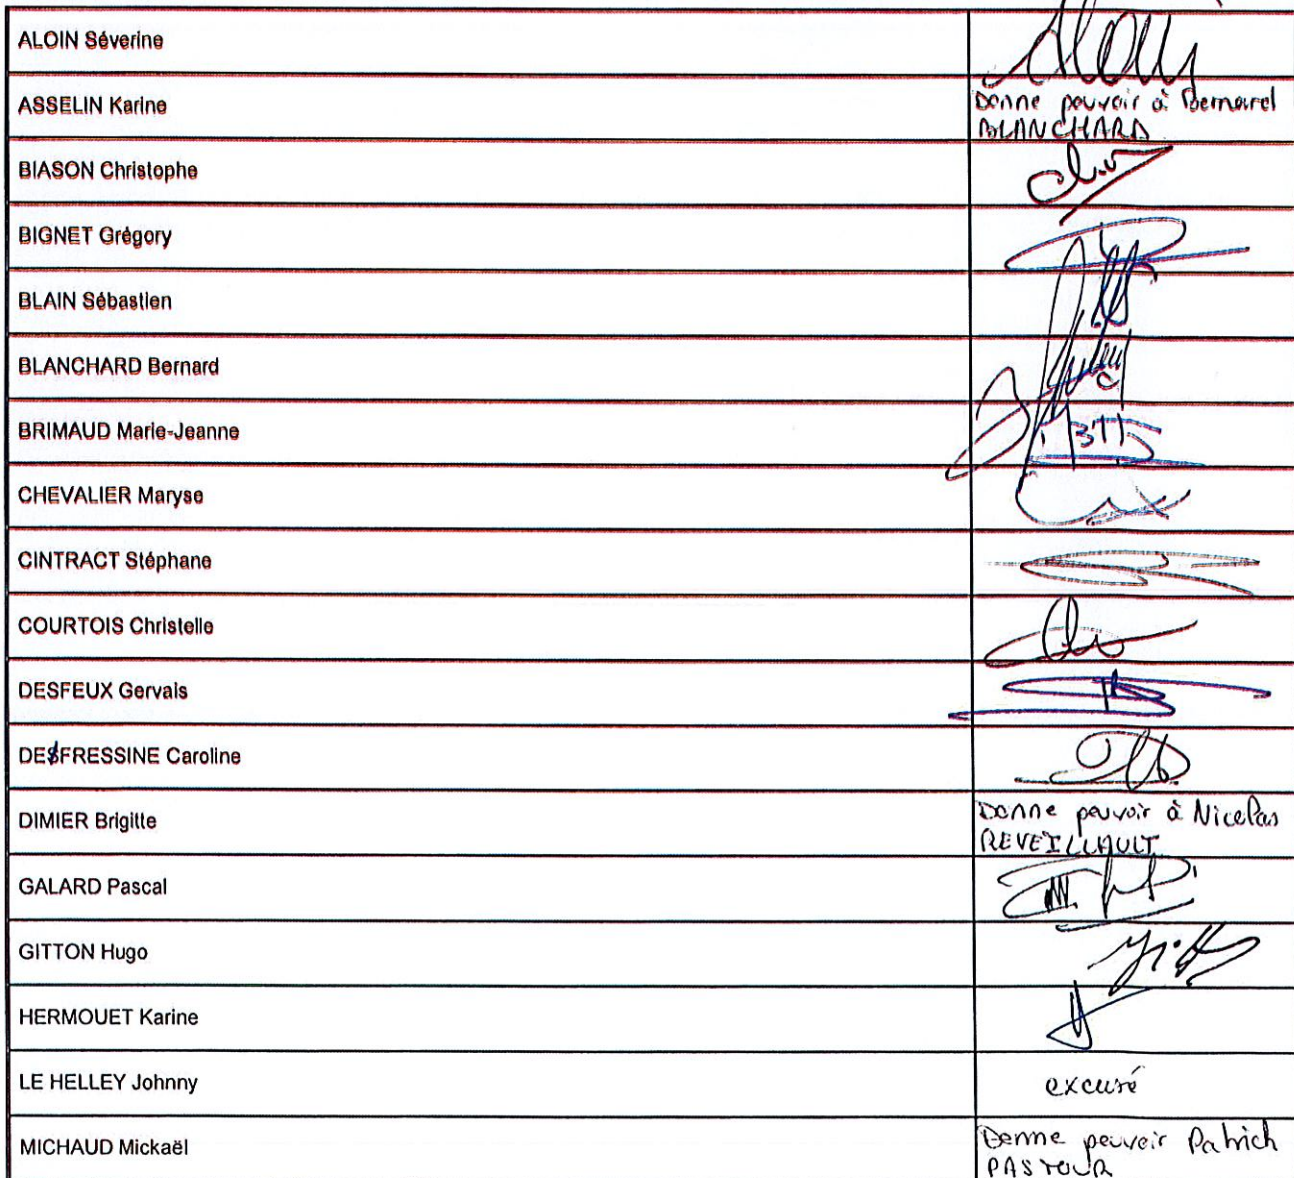 ALOIN Séverine
ASSELIN Karine
Donne pouvoir à Bernard
BLANCHARD
BIASON Christophe
BIGNET Grégory
BLAIN Sébastien
BLANCHARD Bernard
BRIMAUD Marie-Jeanne
CHEVALIER Maryse
CINTRACT Stéphane
COURTOIS Christelle
DESFEUX Gervais
DESFRESSINE Caroline
DIMIER Brigitte
Donne pouvoir à Nicolas
REVEILLAULT
GALARD Pascal
GITTON Hugo
HERMOUET Karine
LE HELLEY Johnny
excusé
MICHAUD Mickaël
Donne pouvoir Patrick
PASTOUR